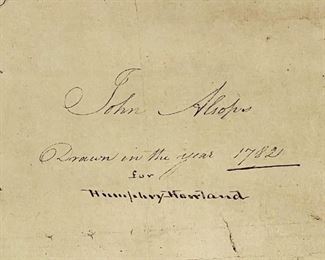 John Alsops
Drawn in the year 1782
for
Humphry Howland